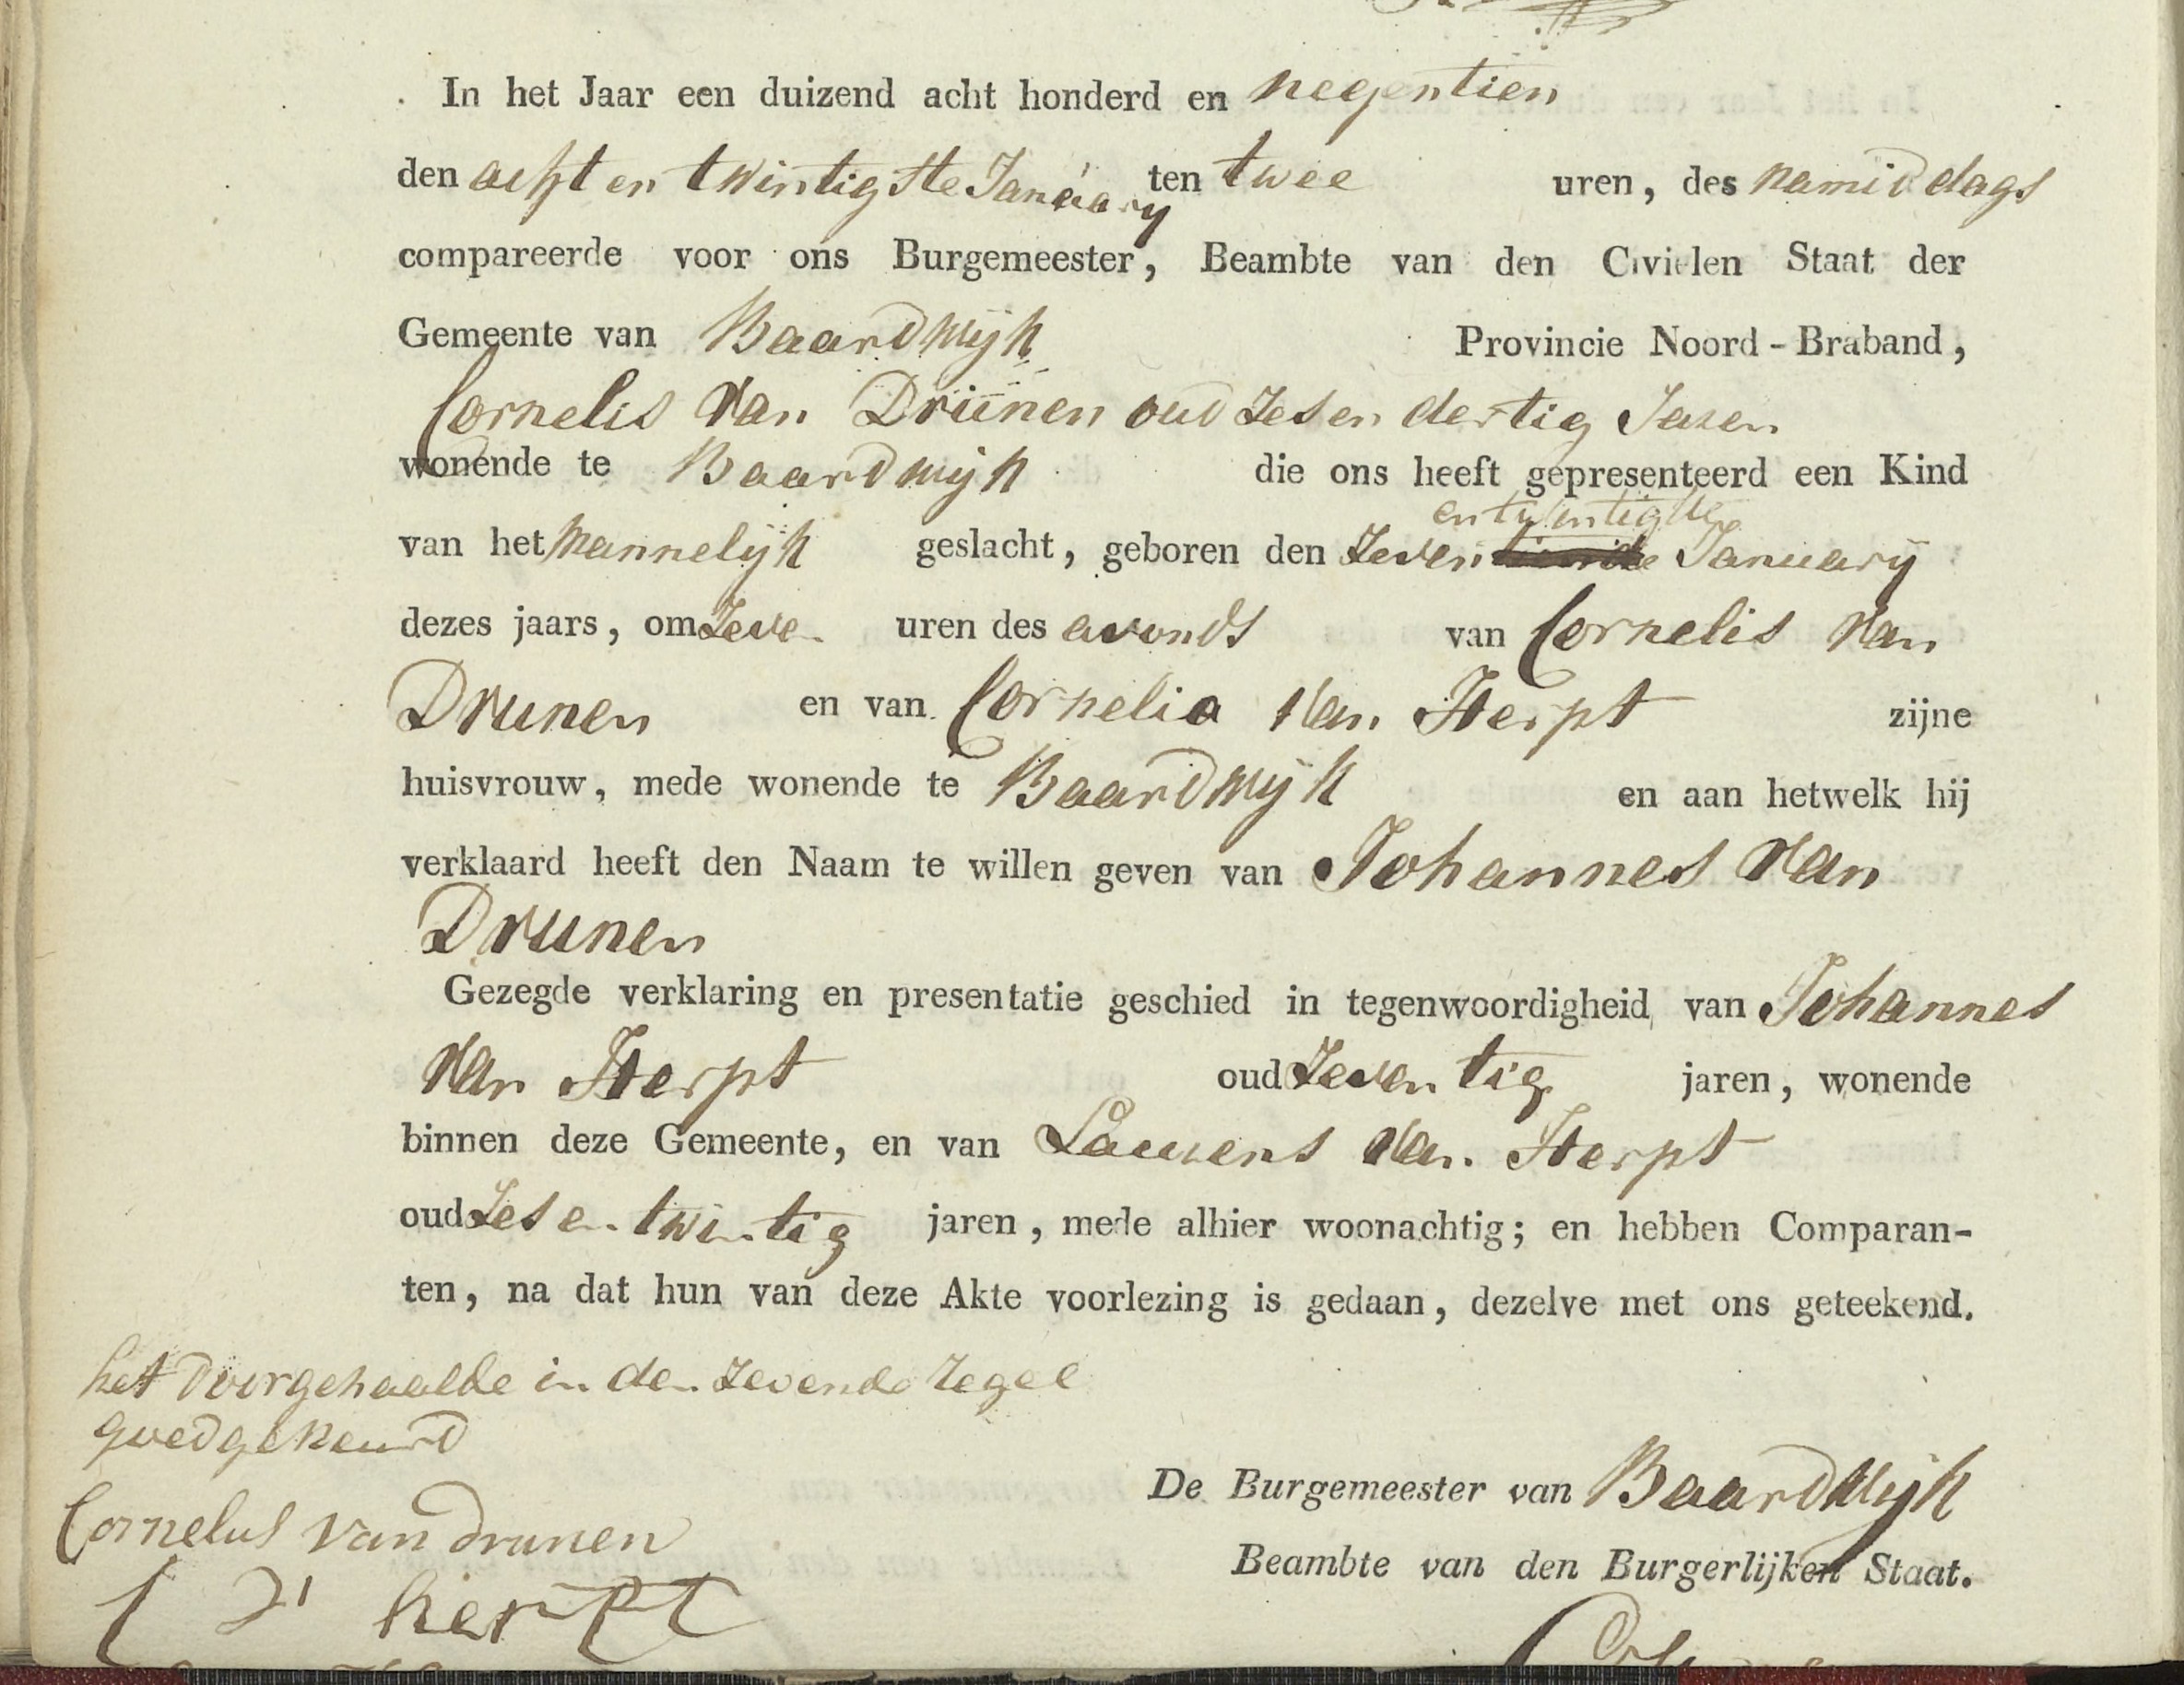 In het Jaar een duizend acht honderd en negentien
den acht en twintigste January ten twee uren, des namiddags
compareerde voor ons Burgemeester, Beambte van den Civielen Staat der
Gemeente van Baardwijk Provincie Noord-Braband,
Cornelis van Drünen oud Zes en dertig Jaren
wonende te Baardwijk die ons heeft gepresenteerd een Kind
en twintigste
van het Mannelijk geslacht, geboren den Zeven tiende January
dezes jaars, om Zeve uren des avonds van Cornelis van
Drunen en van Cornelia van Herpt zijne
huisvrouw, mede wonende te Baardwijk en aan hetwelk hij
verklaard heeft den Naam te willen geven van Johannes van
Drunen
Gezegde verklaring en presentatie geschied in tegenwoordigheid van Johannes
van Herpt oud Zeventig jaren, wonende
binnen deze Gemeente, en van Laurens van Herpt
oud Zes en twintig jaren, mede alhier woonachtig; en hebben Comparan-
ten, na dat hun van deze Akte voorlezing is gedaan, dezelve met ons geteekend.
het doorgehaalde in den zevende regel
goedgekeurd
De Burgemeester van Baardwijk
Cornelus van drunen
Beambte van den Burgerlijken Staat.
herpt